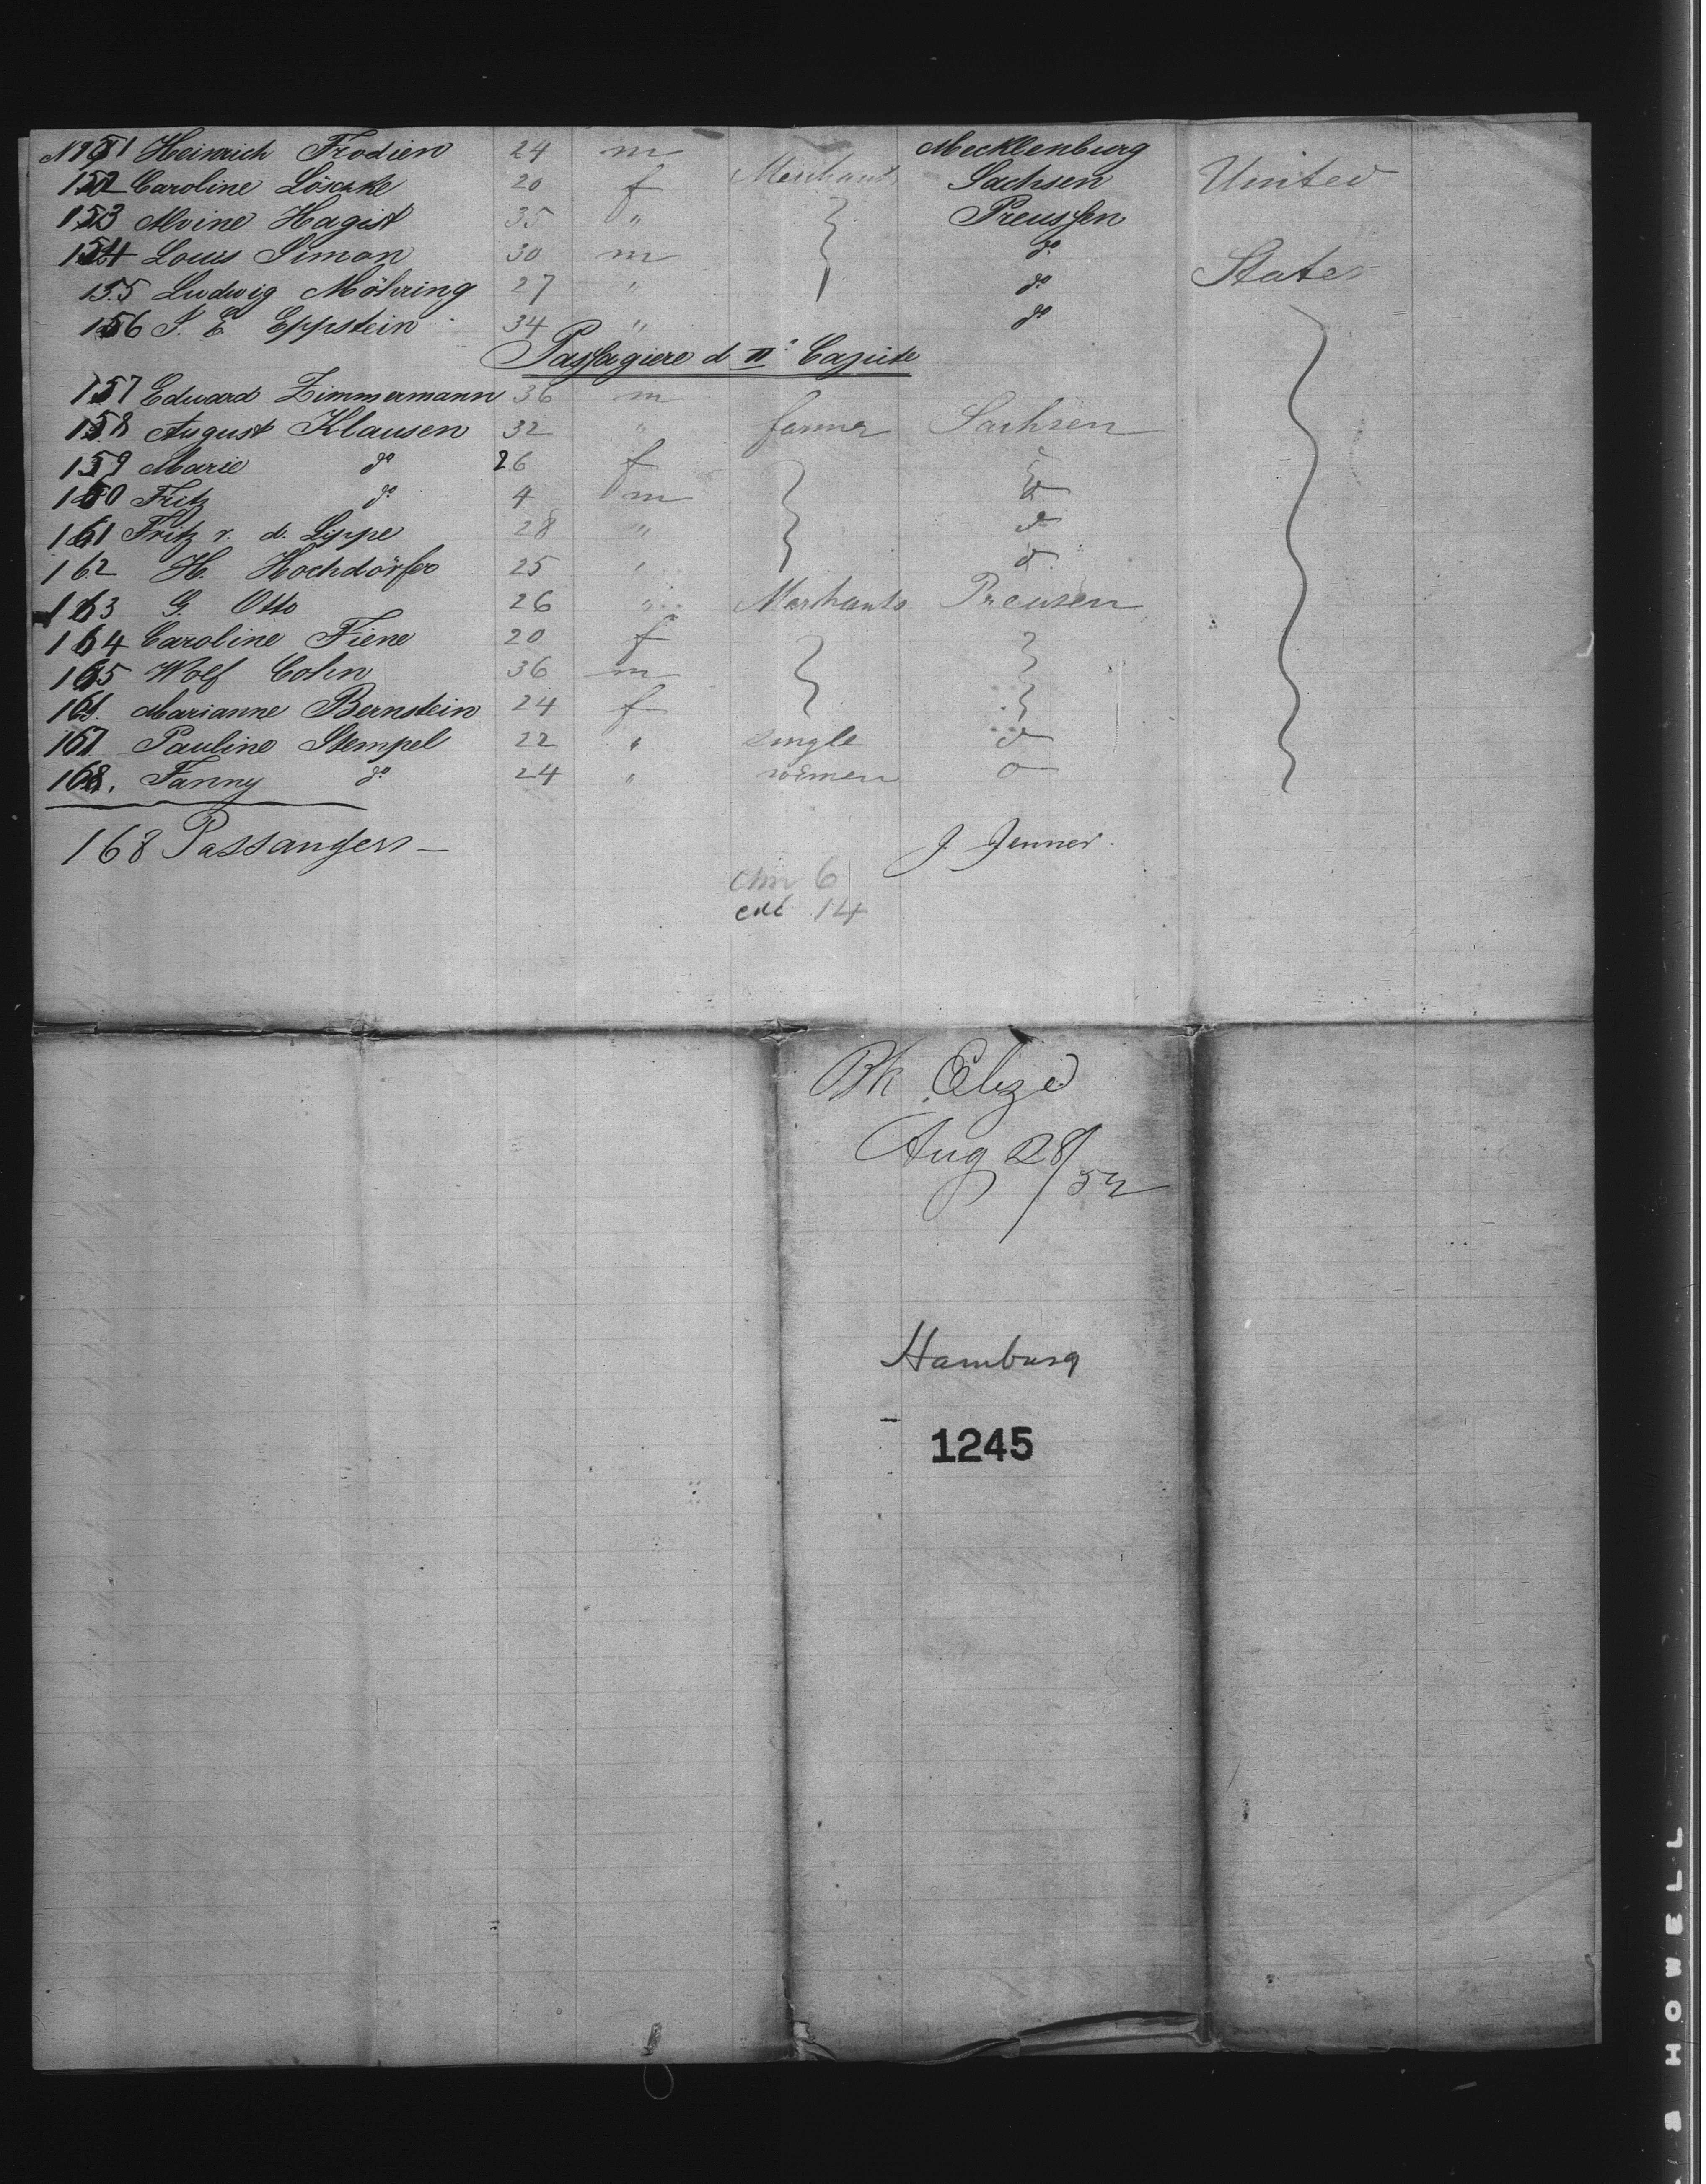 No 151 Heinrich Frodien 24 m Mecklenburg
152 Caroline Löscke 20 f Merchants Sachsen United
153 Alvine Hagist 35 " Preussen
154 Louis Simon 30 m do
155 Ludwig Möhring 27 " do States
156 S. E Eppstein 34 " do
Passagiere d II. Cajüte
157 Eduard Zimmermann 36 m
158 August Klausen 32 " farmer Sachsen
159 Marie do 26 f
160 Fritz do 4 m
161 Fritz v. d. Lippe 28 "
162 H. Hochdörfer 25
163 G. Otto 26 " Merchants Preusen
164 Caroline Fiene 20 f
165 Wolf Cohn 36 m
166. Marianne Bernstein 24 f
167 Pauline Stempel 22 " Single
168. Fanny do 24 " women
168 Passangers
J. Jenner.
6
14
Bk Elize
Aug 28/52
Hamburg
1245
HOWELL